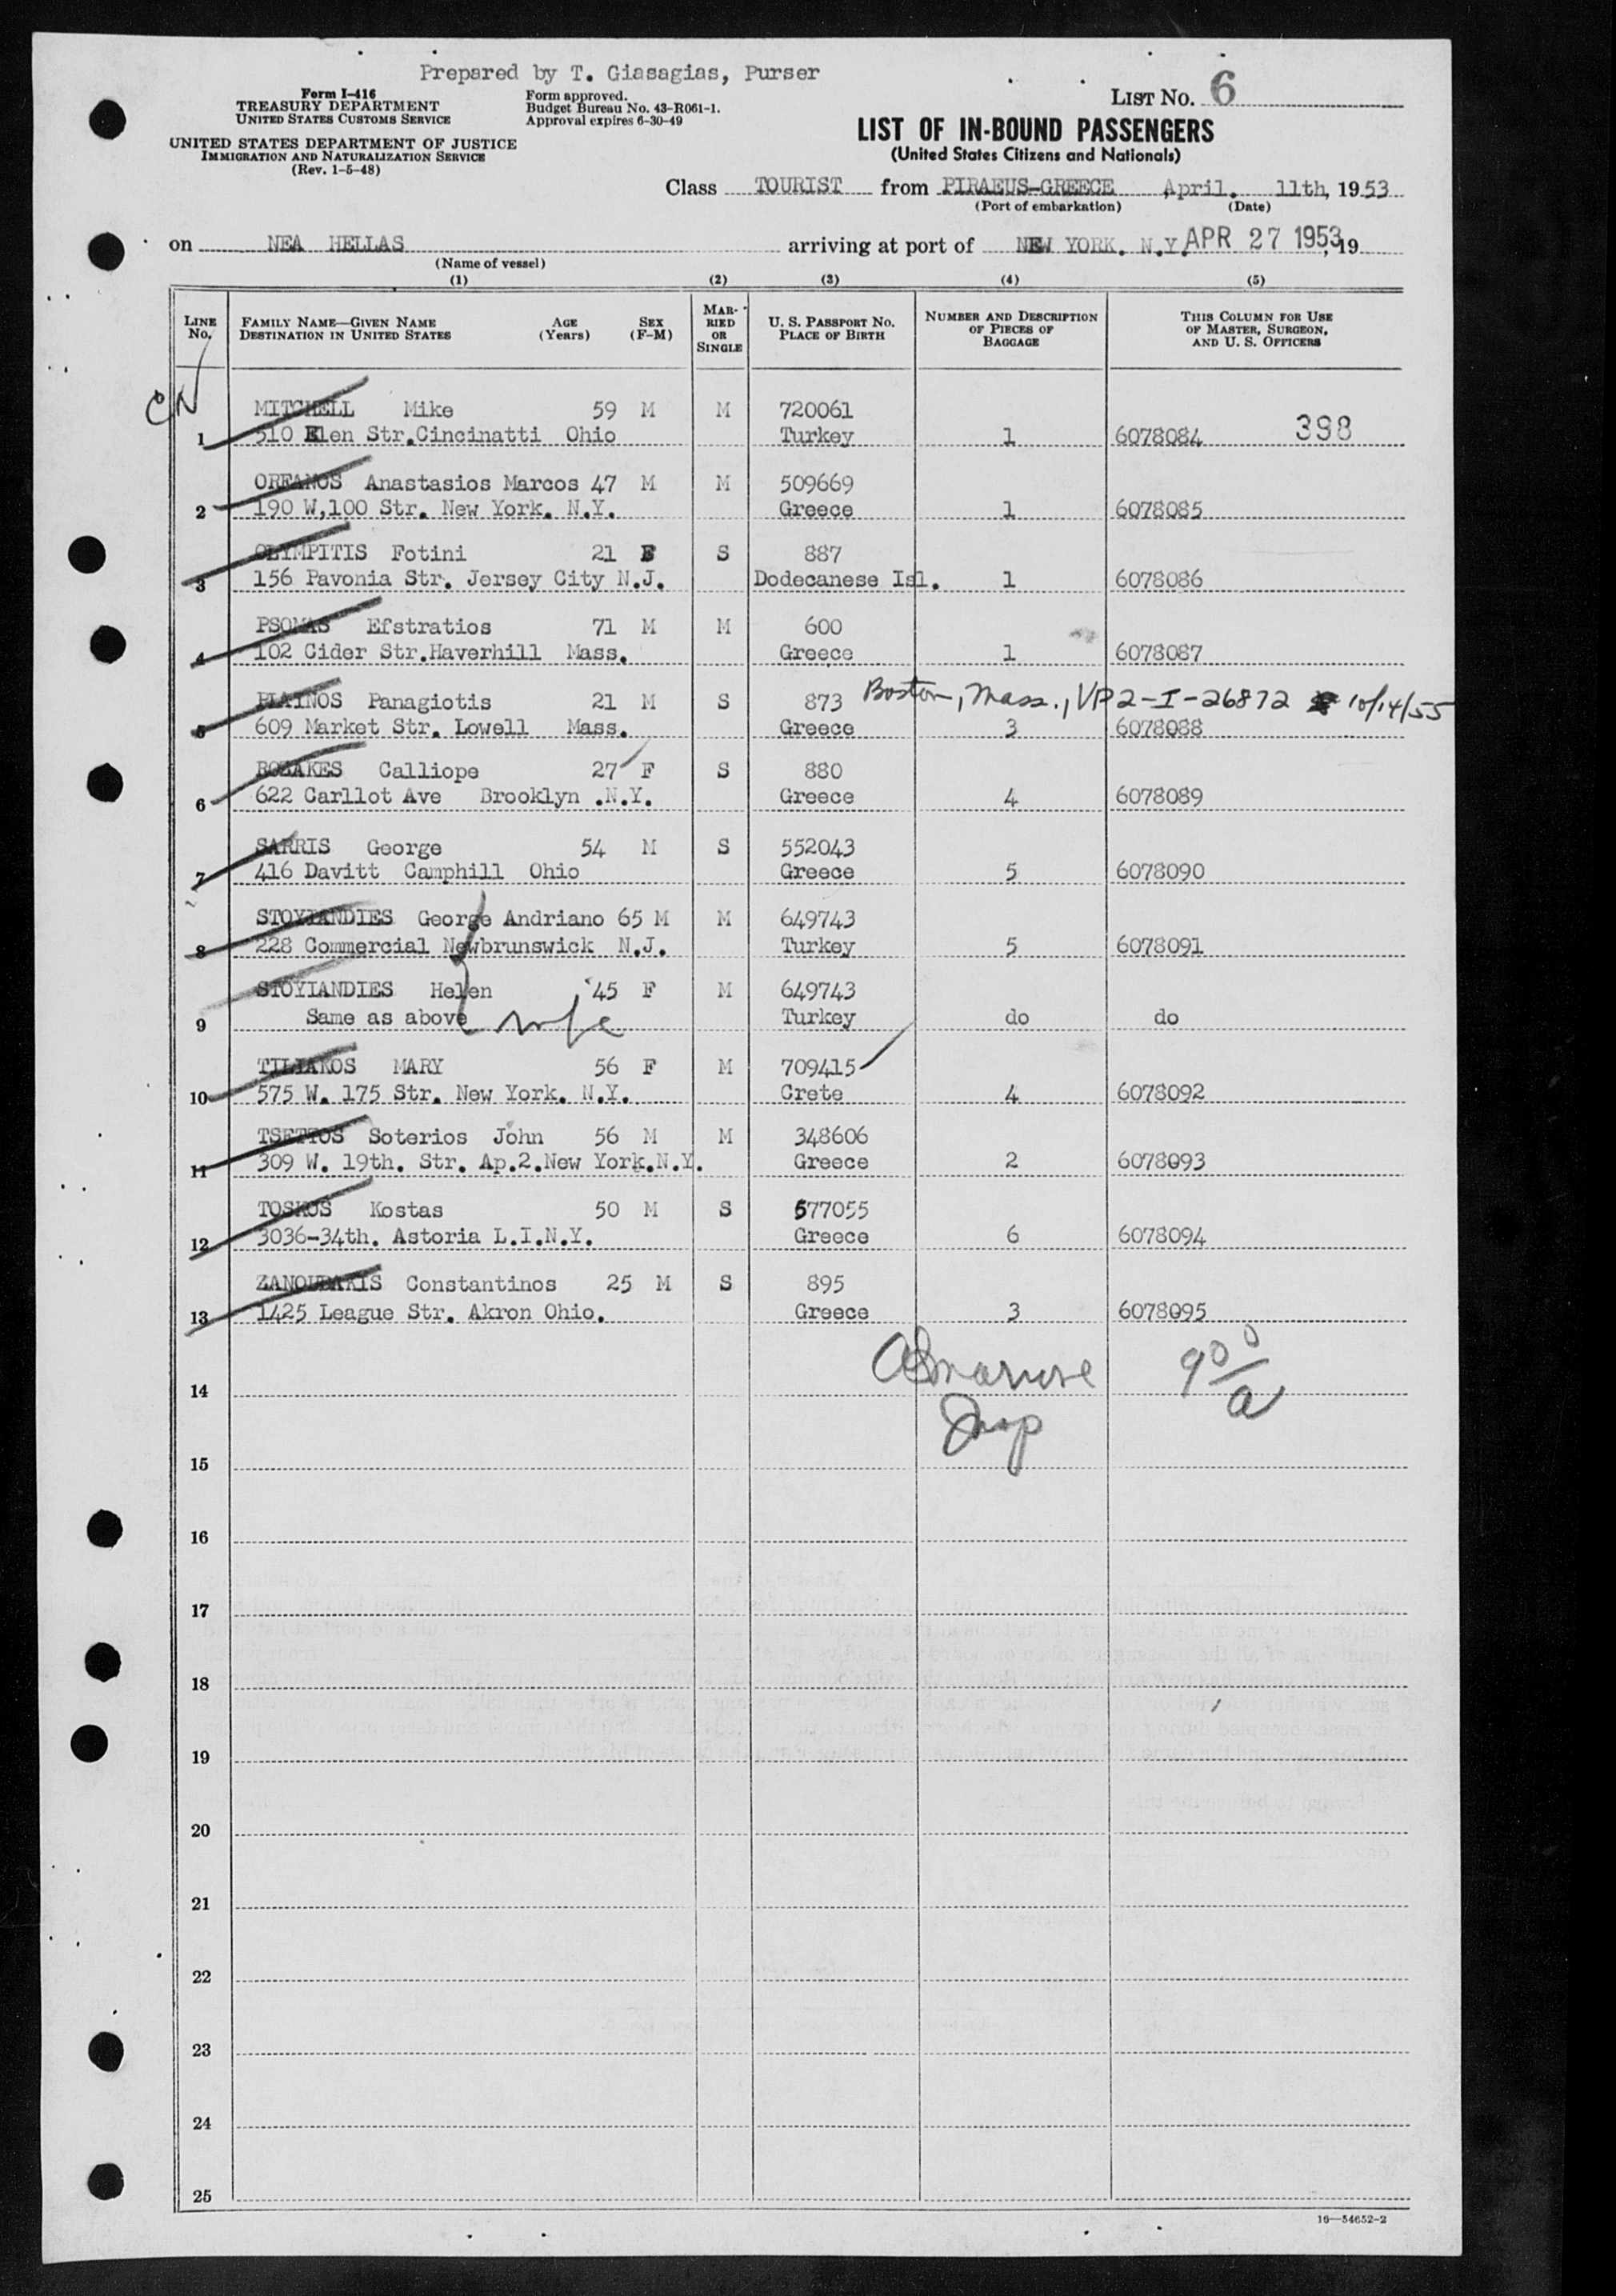 Prepared by T. Giasagias, Purser
Form I-416
TREASURY DEPARTMENT
UNITED STATES CUSTOMS SERVICE
UNITED STATES DEPARTMENT OF JUSTICE
IMMIGRATION AND NATURALIZATION SERVICE
(Rev. 1-5-48)
Form approved.
Budget Bureau No. 43-R061-1.
Approval expires 6-30-49
LIST No. 6
LIST OF IN-BOUND PASSENGERS
(United States Citizens and Nationals)
Class TOURIST from PIRAEUS-GREECE April. 11th, 1953
(Port of embarkation) (Date)
on NEA HELLAS arriving at port of NEW YORK. N.Y. APR 27 1953, 19
(Name of vessel)
(1) (2) (3) (4) (5)
LINE No. FAMILY NAME—GIVEN NAME DESTINATION IN UNITED STATES AGE (Years) SEX (F-M) MARRIED OR SINGLE U. S. PASSPORT No. PLACE OF BIRTH NUMBER AND DESCRIPTION OF PIECES OF BAGGAGE THIS COLUMN FOR USE OF MASTER, SURGEON, AND U. S. OFFICERS
MITCHELL Mike 59 M M 720061
1 510 Elen Str.Cincinatti Ohio Turkey 1 6078084 398
ORFANOS Anastasios Marcos 47 M M 509669
2 190 W,100 Str. New York. N.Y. Greece 1 6078085
OLYMPITIS Fotini 21 F S 887
3 156 Pavonia Str. Jersey City N.J. Dodecanese Isl. 1 6078086
PSOMAS Efstratios 71 M M 600
4 102 Cider Str.Haverhill Mass. Greece 1 6078087
Panagiotis 21 M S 873 Boston, Mass., VP2-I-26872 10/14/55
5 609 Market Str. Lowell Mass. Greece 3 6078088
Calliope 27 F S 880
6 622 Carllot Ave Brooklyn .N.Y. Greece 4 6078089
SARRIS George 54 M S 552043
7 416 Davitt Camphill Ohio Greece 5 6078090
STOYIANDIES George Andriano 65 M M 649743
8 228 Commercial Newbrunswick N.J. Turkey 5 6078091
STOYIANDIES Helen 45 F M 649743
9 Same as above wife Turkey do do
TILIAKOS MARY 56 F M 709415
10 575 W. 175 Str. New York. N.Y. Crete 4 6078092
TSETTOS Soterios John 56 M M 348606
11 309 W. 19th. Str. Ap.2.New York.N.Y. Greece 2 6078093
TOSKOS Kostas 50 M S 577055
12 3036-34th. Astoria L.I.N.Y. Greece 6 6078094
ZANOUDAKIS Constantinos 25 M S 895
13 1425 League Str. Akron Ohio. Greece 3 6078095
14
15
16
17
18
19
20
21
22
23
24
25
16—54652-2